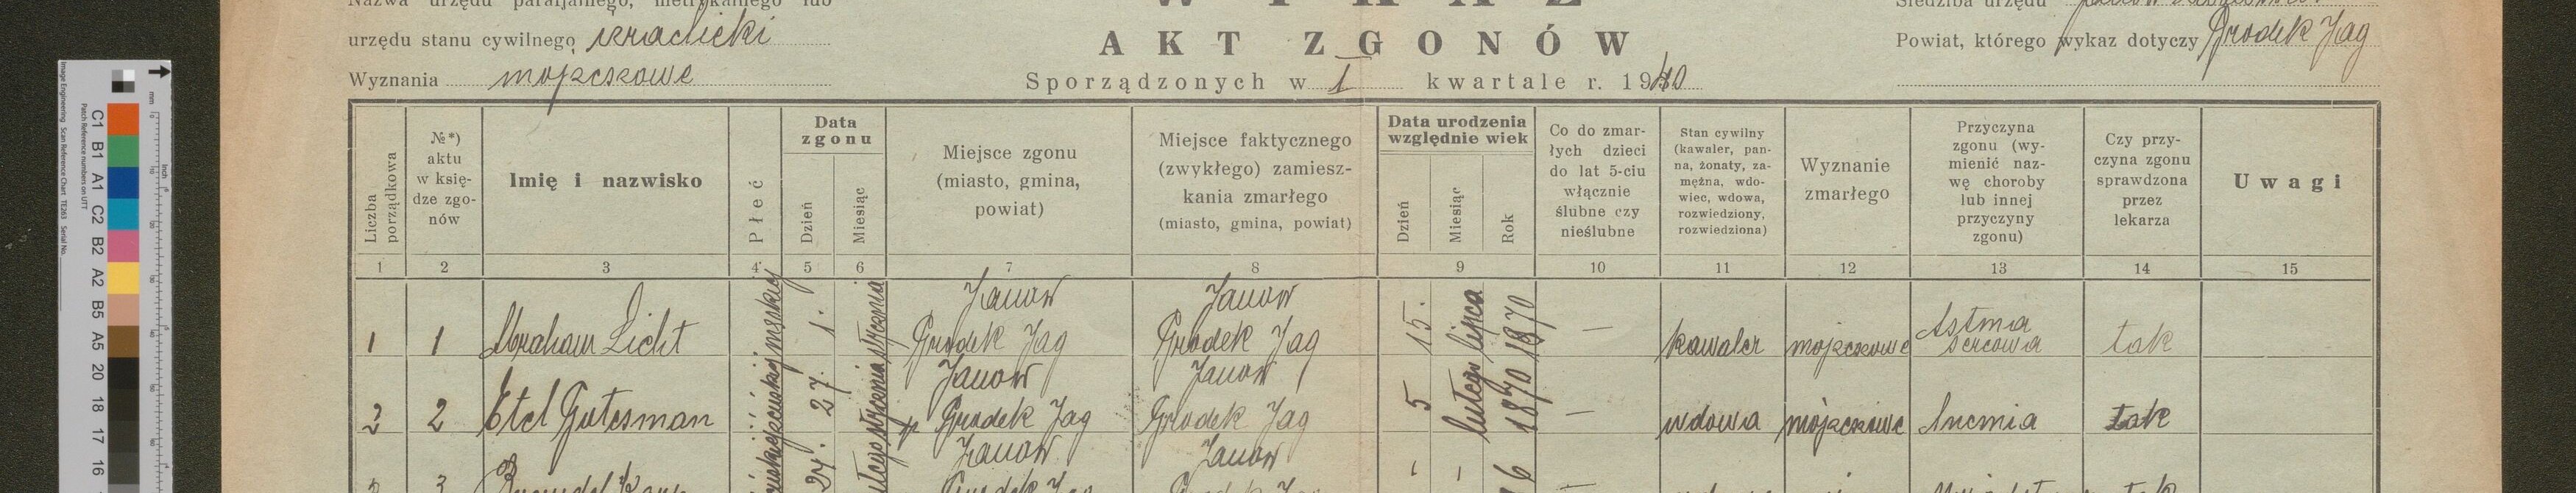 Nazwa urzędu parafjalnego, metrykalnego lub
urzędu stanu cywilnego izraelicki
Wyznania mojżeszowe
WYKAZ
AKT ZGONÓW
Sporządzonych w I kwartale r. 1940
Siedziba urzędu
Powiat, którego wykaz dotyczy Gródek Jag
Liczba porządkowa
№*) aktu w księdze zgonów
Imię i nazwisko
Płeć
Data zgonu
Dzień
Miesiąc
Miejsce zgonu
(miasto, gmina,
powiat)
Miejsce faktycznego
(zwykłego) zamiesz-
kania zmarłego
(miasto, gmina, powiat)
Data urodzenia
względnie wiek
Dzień
Miesiąc
Rok
Co do zmar-
łych dzieci
do lat 5-ciu
włącznie
ślubne czy
nieślubne
Stan cywilny
(kawaler, pan-
na, żonaty, za-
mężna, wdo-
wiec, wdowa,
rozwiedziony,
rozwiedziona)
Wyznanie
zmarłego
Przyczyna
zgonu (wy-
mienić naz-
wę choroby
lub innej
przyczyny
zgonu)
Czy przy-
czyna zgonu
sprawdzona
przez
lekarza
Uwagi
1 2 3 4 5 6 7 8 9 10 11 12 13 14 15
1 1 Abraham Licht męskiej 1. stycznia Janow Gródek Jag Janow Gródek Jag 15. lipca 1870 — kawaler mojżeszowe Astma sercowa tak
2 2 Etel Gutesman żeńskiej 27. stycznia Janow Gródek Jag Janow Gródek Jag 5 lutego 1870 — wdowa mojżeszowe Anemia tak
3 3 Janow Gródek Jag Janow Gródek Jag tak
C1 B1 A1 C2 B2 A2 B5 A5 20 18 17 16
mm
inch
Image Engineering Scan Reference Chart TE263 Serial No.
Patch Reference numbers on UTT